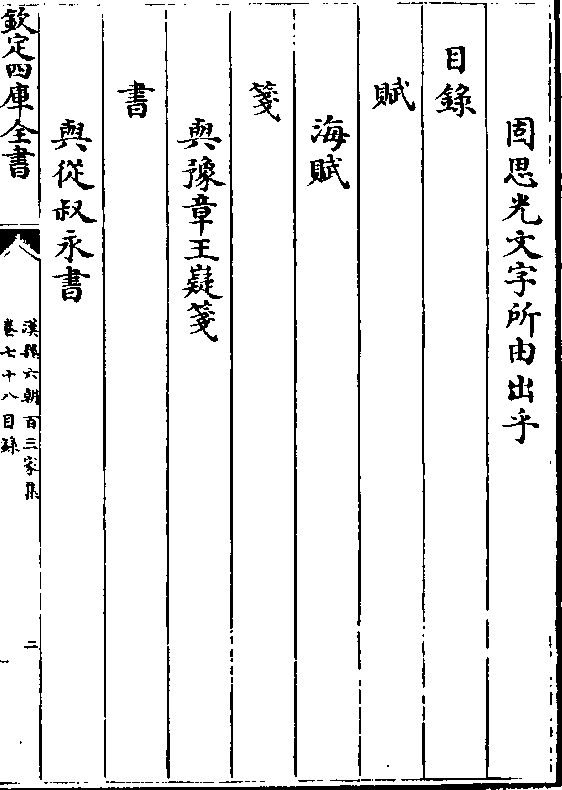 固思光文字所由出乎
目錄
賦
海賦
箋
與豫章王嶷箋
書
與從叔永書
欽定四庫全書
漢魏六朝百三家集
卷七十八目錄
二